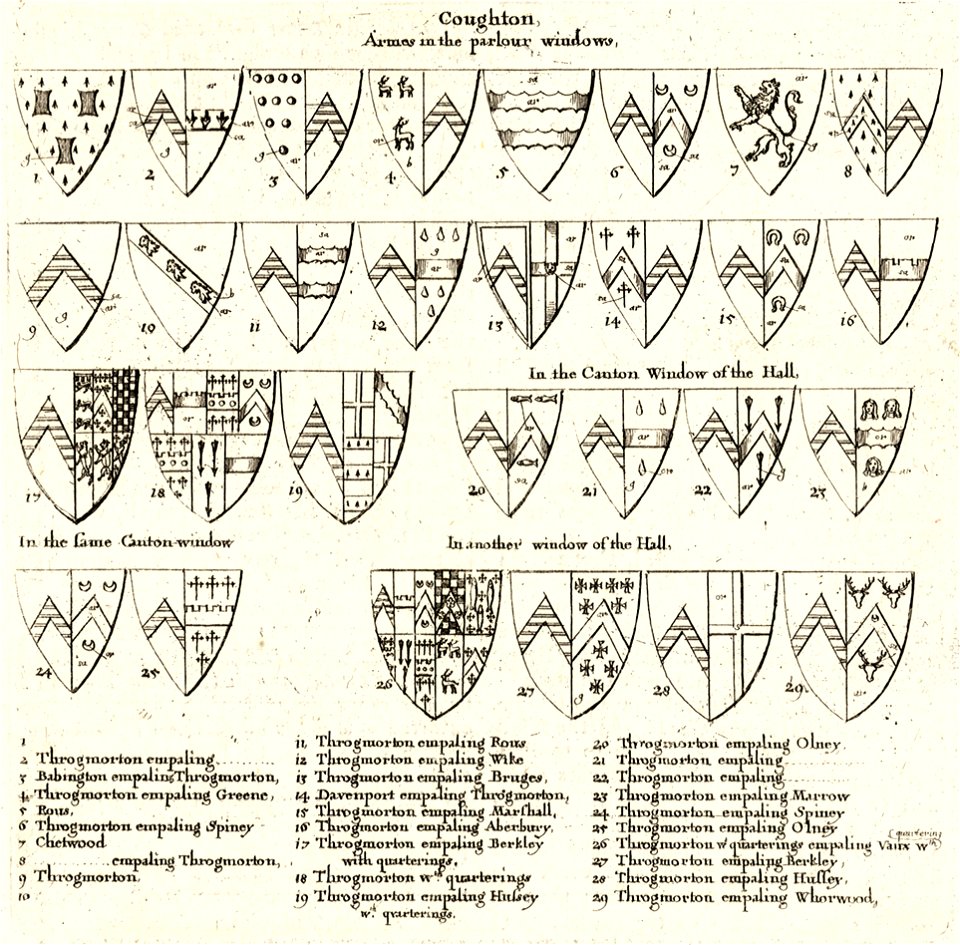 Coughton,
Armes in the parlour windows,
1
2
3
4
5
6
7
8
9
10
11
12
13
14
15
16
In the Canton Window of the Hall,
17
18
19
20
21
22
23
In the same Canton window
In another window of the Hall,
24
25
26
27
28
29
1
2 Throgmorton empaling
3 Babington empaling Throgmorton,
4 Throgmorton empaling Greene,
5 Rous,
6 Throgmorton empaling Spiney
7 Chetwood
8 empaling Throgmorton,
9 Throgmorton.
10
11 Throgmorton empaling Rous
12 Throgmorton empaling Wike
13 Throgmorton empaling Bruges,
14 Davenport empaling Throgmorton,
15 Throgmorton empaling Marshall,
16 Throgmorton empaling Aberbury,
17 Throgmorton empaling Berkley
with quarterings,
18 Throgmorton wth quarterings
19 Throgmorton empaling Hussey
wth quarterings.
20 Throgmorton empaling Olney.
21 Throgmorton empaling
22 Throgmorton empaling
23 Throgmorton empaling Marrow
24 Throgmorton empaling Spiney
25 Throgmorton empaling Olney
26 Throgmorton wth quarterings empaling Vaux wth (quartering
27 Throgmorton empaling Berkley,
28 Throgmorton empaling Hussey,
29 Throgmorton empaling Whorwood,